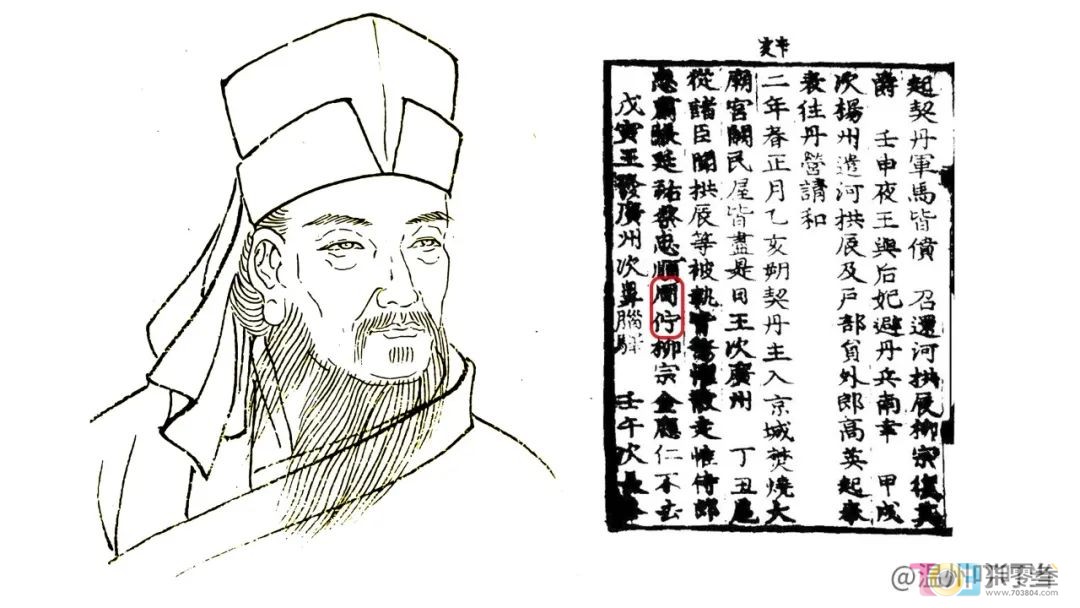 辛亥
起契丹軍馬皆僨 召還河拱辰柳宗復其
爵 壬申夜王與后妃避丹兵南幸 甲戌
次楊州遣河拱辰及戶部員外郎高英起奉
表往丹營請和
二年春正月乙亥朔契丹主入京城焚燒大
廟宮闕民屋皆盡是日王次廣州 丁丑扈
從諸臣聞拱辰等被執皆驚懼散走惟侍郎
忠肅張延祐蔡忠順周佇柳宗金應仁不去
戊寅王發廣州次鼻腦驛 壬午次長
@温州 零叁
www.703804.com